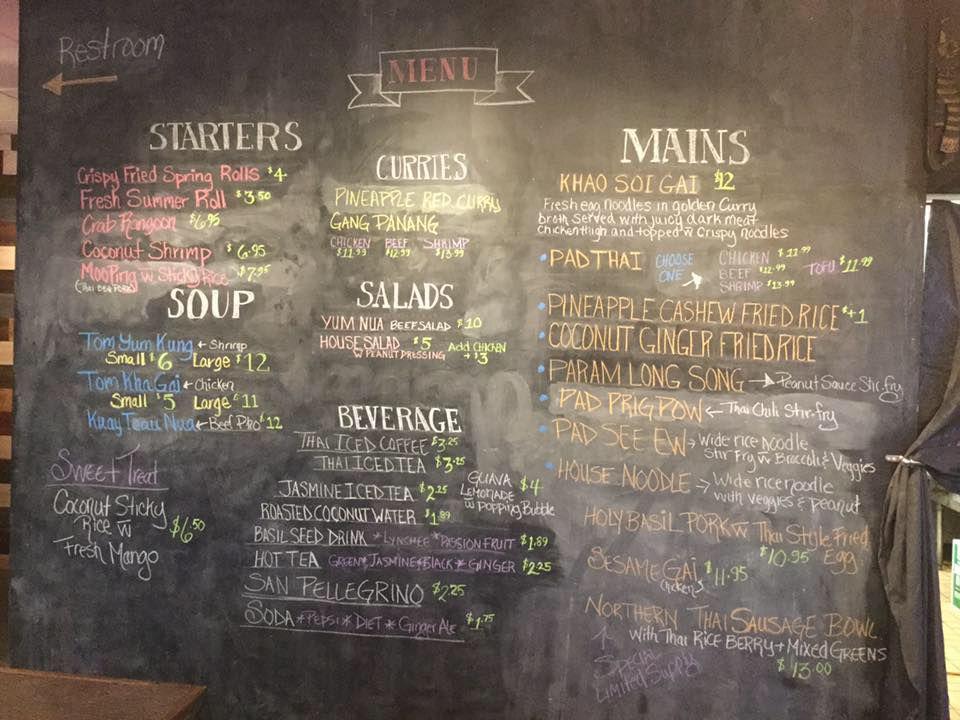 Restroom
MENU
STARTERS
Crispy Fried Spring Rolls $4
Fresh Summer Roll $3.50
Crab Rangoon $6.95
Coconut Shrimp $6.95
MooPing w Sticky Rice $7.95
(Thai BBQ Pork)
SOUP
Tom Yum Kung ← Shrimp
Small $6 Large $12
Tom Kha Gai ← Chicken
Small $5 Large $11
Kuay Teau Nua ← Beef Pho $12
Sweet Treat
Coconut Sticky
Rice w
Fresh Mango
$6.50
CURRIES
PINEAPPLE RED CURRY
GANG PANANG
CHICKEN BEEF SHRIMP
$11.99 $12.99 $13.99
SALADS
YUM NUA BEEF SALAD $10
HOUSE SALAD $5 Add CHICKEN
W PEANUT DRESSING + $3
BEVERAGE
THAI ICED COFFEE $3.25
THAI ICED TEA $3.25
JASMINE ICED TEA $2.25
GUAVA
LEMONADE $4
w popping Bubble
ROASTED COCONUT WATER $1.89
BASIL SEED DRINK * LYNCHEE * PASSION FRUIT $1.89
HOT TEA GREEN * JASMINE * BLACK * GINGER $2.25
SAN PELLEGRINO $2.25
SODA * PEPSI * DIET * Ginger Ale $1.75
MAINS
KHAO SOI GAI $12
Fresh egg noodles in golden Curry
broth Served with juicy dark meat
Chicken thigh and topped w Crispy noodles
• PAD THAI CHOOSE ONE → CHICKEN $11.99 TOFU $11.99
BEEF $12.99
SHRIMP $13.99
• PINEAPPLE CASHEW FRIED RICE $+1
• COCONUT GINGER FRIED RICE
• PARAM LONG SONG → Peanut Sauce Stir fry
• PAD PRIG POW ← Thai Chili Stir-fry
• PAD SEE EW → Wide rice Noodle
Stir Fry w Broccoli & Veggies
• HOUSE NOODLE → Wide rice noodle
with veggies & peanut
HOLY BASIL PORK w Thai Style Fried
Egg
$10.95
SESAME GAI $11.95
Chicken
NORTHERN THAI SAUSAGE BOWL
with Thai RICE BERRY + Mixed GREENS
$13.00
Special
Limited Supply